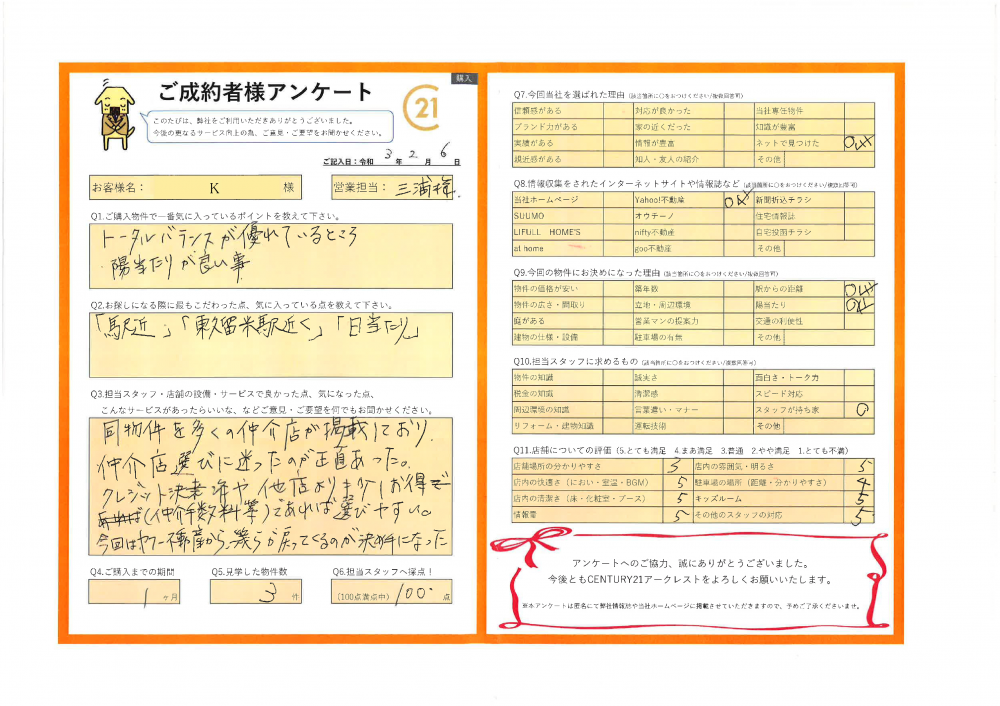 購入
ご成約者様アンケート
21
このたびは、弊社をご利用いただきありがとうございました。
今後の更なるサービス向上の為、ご意見・ご要望をお聞かせください。
ご記入日：令和 3 年 2 月 6 日
お客様名： K 様
営業担当： 三浦
Q1.ご購入物件で一番気に入っているポイントを教えて下さい。
トータルバランスが優れているところ
・陽当たりが良い事
Q2.お探しになる際に最もこだわった点、気に入っている点を教えて下さい。
「駅近」「東久留米駅近く」「日当たり」
Q3.担当スタッフ・店舗の設備・サービスで良かった点、気になった点、
こんなサービスがあったらいいな、などご意見・ご要望を何でもお聞かせください。
同物件を多くの仲介店が掲載しており、
仲介店選びに迷ったのが正直あった。
クレジット決済や、他店よりも少しお得で
(仲介手数料等)であれば選びやすい。
今回はヤフー不動産から、幾らか戻ってくるのが決め手になった
Q4.ご購入までの期間
1 ヶ月
Q5.見学した物件数
3 件
Q6.担当スタッフへ採点！
(100点満点中) 100 点
Q7.今回当社を選ばれた理由（該当箇所に○をおつけください/複数回答可）
信頼感がある 対応が良かった 当社専任物件
ブランド力がある 家の近くだった 知識が豊富
実績がある 情報が豊富 ネットで見つけた
親近感がある 知人・友人の紹介 その他
Q8.情報収集をされたインターネットサイトや情報誌など（該当箇所に○をおつけください/複数回答可）
当社ホームページ Yahoo!不動産 新聞折込チラシ
SUUMO オウチーノ 住宅情報誌
LIFULL HOME'S nifty不動産 自宅投函チラシ
at home goo不動産 その他
Q9.今回の物件にお決めになった理由（該当箇所に○をおつけください/複数回答可）
物件の価格が安い 築年数 駅からの距離
物件の広さ・間取り 立地・周辺環境 陽当たり
庭がある 営業マンの提案力 交通の利便性
建物の仕様・設備 駐車場の有無 その他
Q10.担当スタッフに求めるもの（該当箇所に○をおつけください/複数回答可）
物件の知識 誠実さ 面白さ・トーク力
税金の知識 清潔感 スピード対応
周辺環境の知識 言葉遣い・マナー スタッフが持ち家 ○
リフォーム・建物知識 運転技術 その他
Q11.店舗についての評価（5.とても満足 4.まあ満足 3.普通 2.やや満足 1.とても不満）
店舗場所の分かりやすさ 5 店内の雰囲気・明るさ 5
店内の快適さ（におい・室温・BGM） 5 駐車場の場所（距離・分かりやすさ） 4
店内の清潔さ（床・化粧室・ブース） 5 キッズルーム 5
情報量 5 その他のスタッフの対応 5
アンケートへのご協力、誠にありがとうございました。
今後ともCENTURY21アークレストをよろしくお願いいたします。
※本アンケートは匿名にて弊社情報誌や当社ホームページに掲載させていただきますので、予めご了承くださいませ。